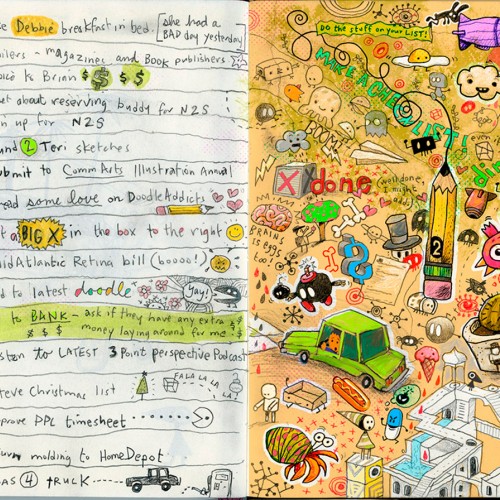 Debbie breakfast in bed. [she had a
BAD day yesterday]
- magazines and Book publishers
to Brian $ $ $ $
about reserving buddy for N2S
up for N2S
2 Teri sketches
submit to CommArts Illustration Annual
some love on DoodleAddicts
a BIG X in the box to the right
MidAtlantic Retina bill (boooo!)
to latest doodle Yay!
to BANK - ask if they have any extra
$ $ $ money laying around for me! $
listen to LATEST 3 Point perspective Podcast
FA LA LA
LA LA
Steve Christmas list
PPL timesheet
molding to Home Depot
GAS 4 truck
DO the stuff on your LIST!
MAKE A CHECKLIST!
BOOM
X X done (well done,
I might
add)
BRAINS
is eggs
too!
even
2